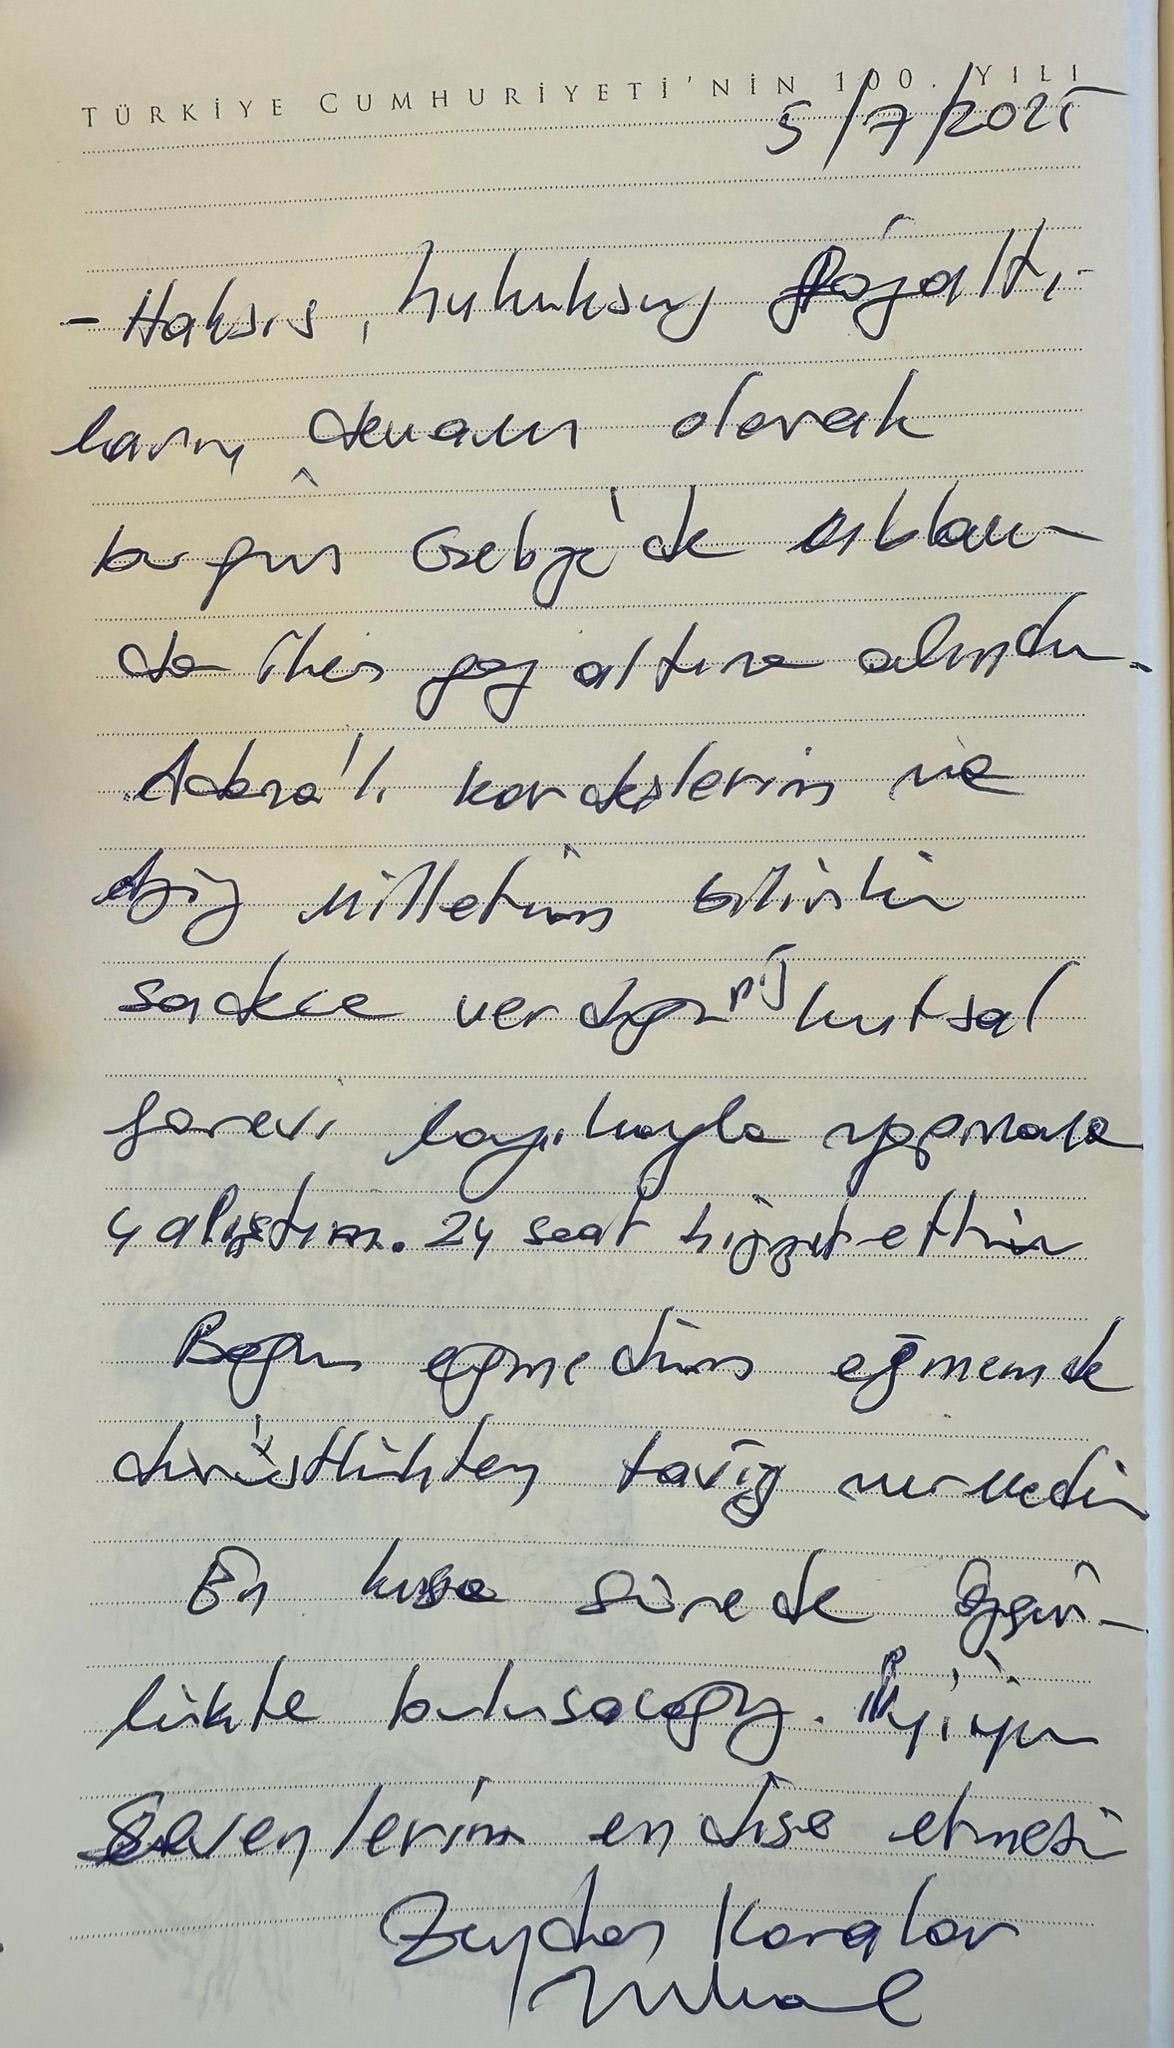 TÜRKİYE CUMHURİYETİ'NİN 100. YILI
5/7/2025
- Haksız, hukuksuz gözaltı-
ların devamı olarak
bugün Gebze'de
da gözaltına alındım.
Adana'lı kardeşlerim ve
Aziz Milletim bilsin ki
sadece verdiğiniz kutsal
görevi layıkıyla yapmaya
çalıştım. 24 saat hizmet ettim
Boyun eğmedim eğmem de
dürüstlükten taviz vermedim
En kısa sürede özgür-
lükte buluşacağız. İyiyim
Sevenlerim endişe etmesin
Zeydan Karalar